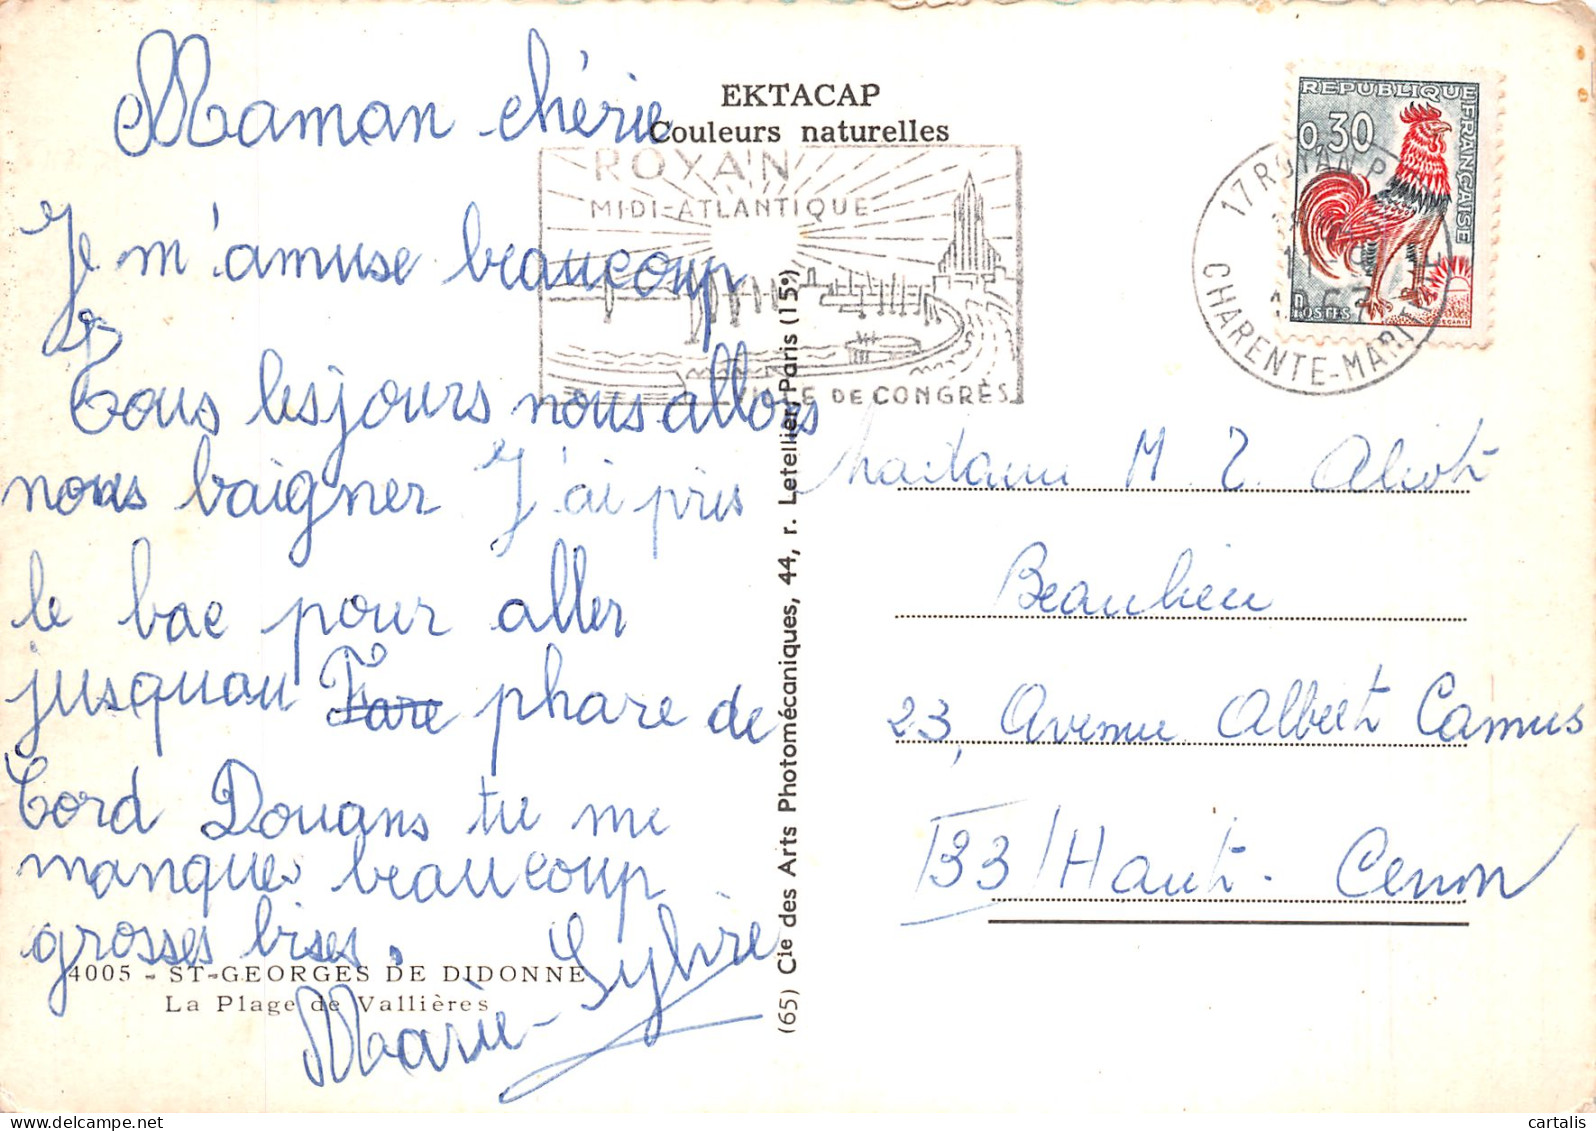 Maman chérie
Je m'amuse beaucoup
Tous les jours nous allons
nous baigner J'ai pris
le bac pour aller
jusquau Fare phare de
Cord Douans tu me
manques beaucoup
grosses bises.
Marie-Sylvie
4005 - ST-GEORGES DE DIDONNE
La Plage de Vallières
EKTACAP
Couleurs naturelles
ROYAN
MIDI-ATLANTIQUE
VILLE DE CONGRÈS
(65) Cie des Arts Photomécaniques, 44, r. Letellier, Paris (15e)
REPUBLIQUE FRANÇAISE
0,30
POSTES
17 ROYAN P
CHARENTE-MARITIME
M. T. Aliot
Beaulieu
23, Avenue Albert Camus
33/Haut-Cenon
cartalis